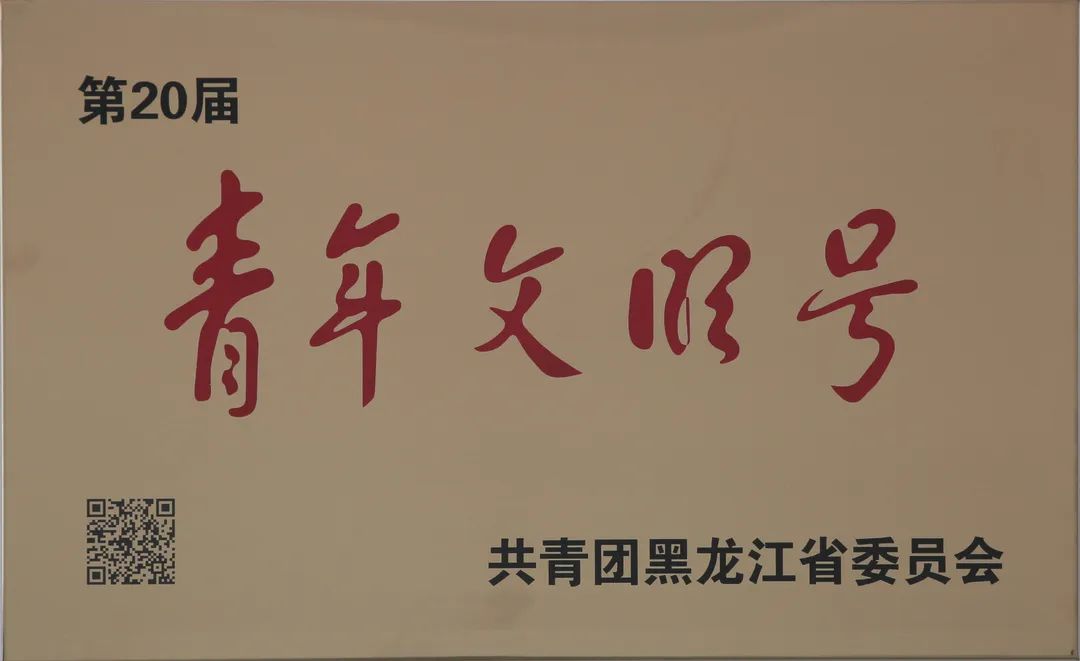 第20届
青年文明号
共青团黑龙江省委员会